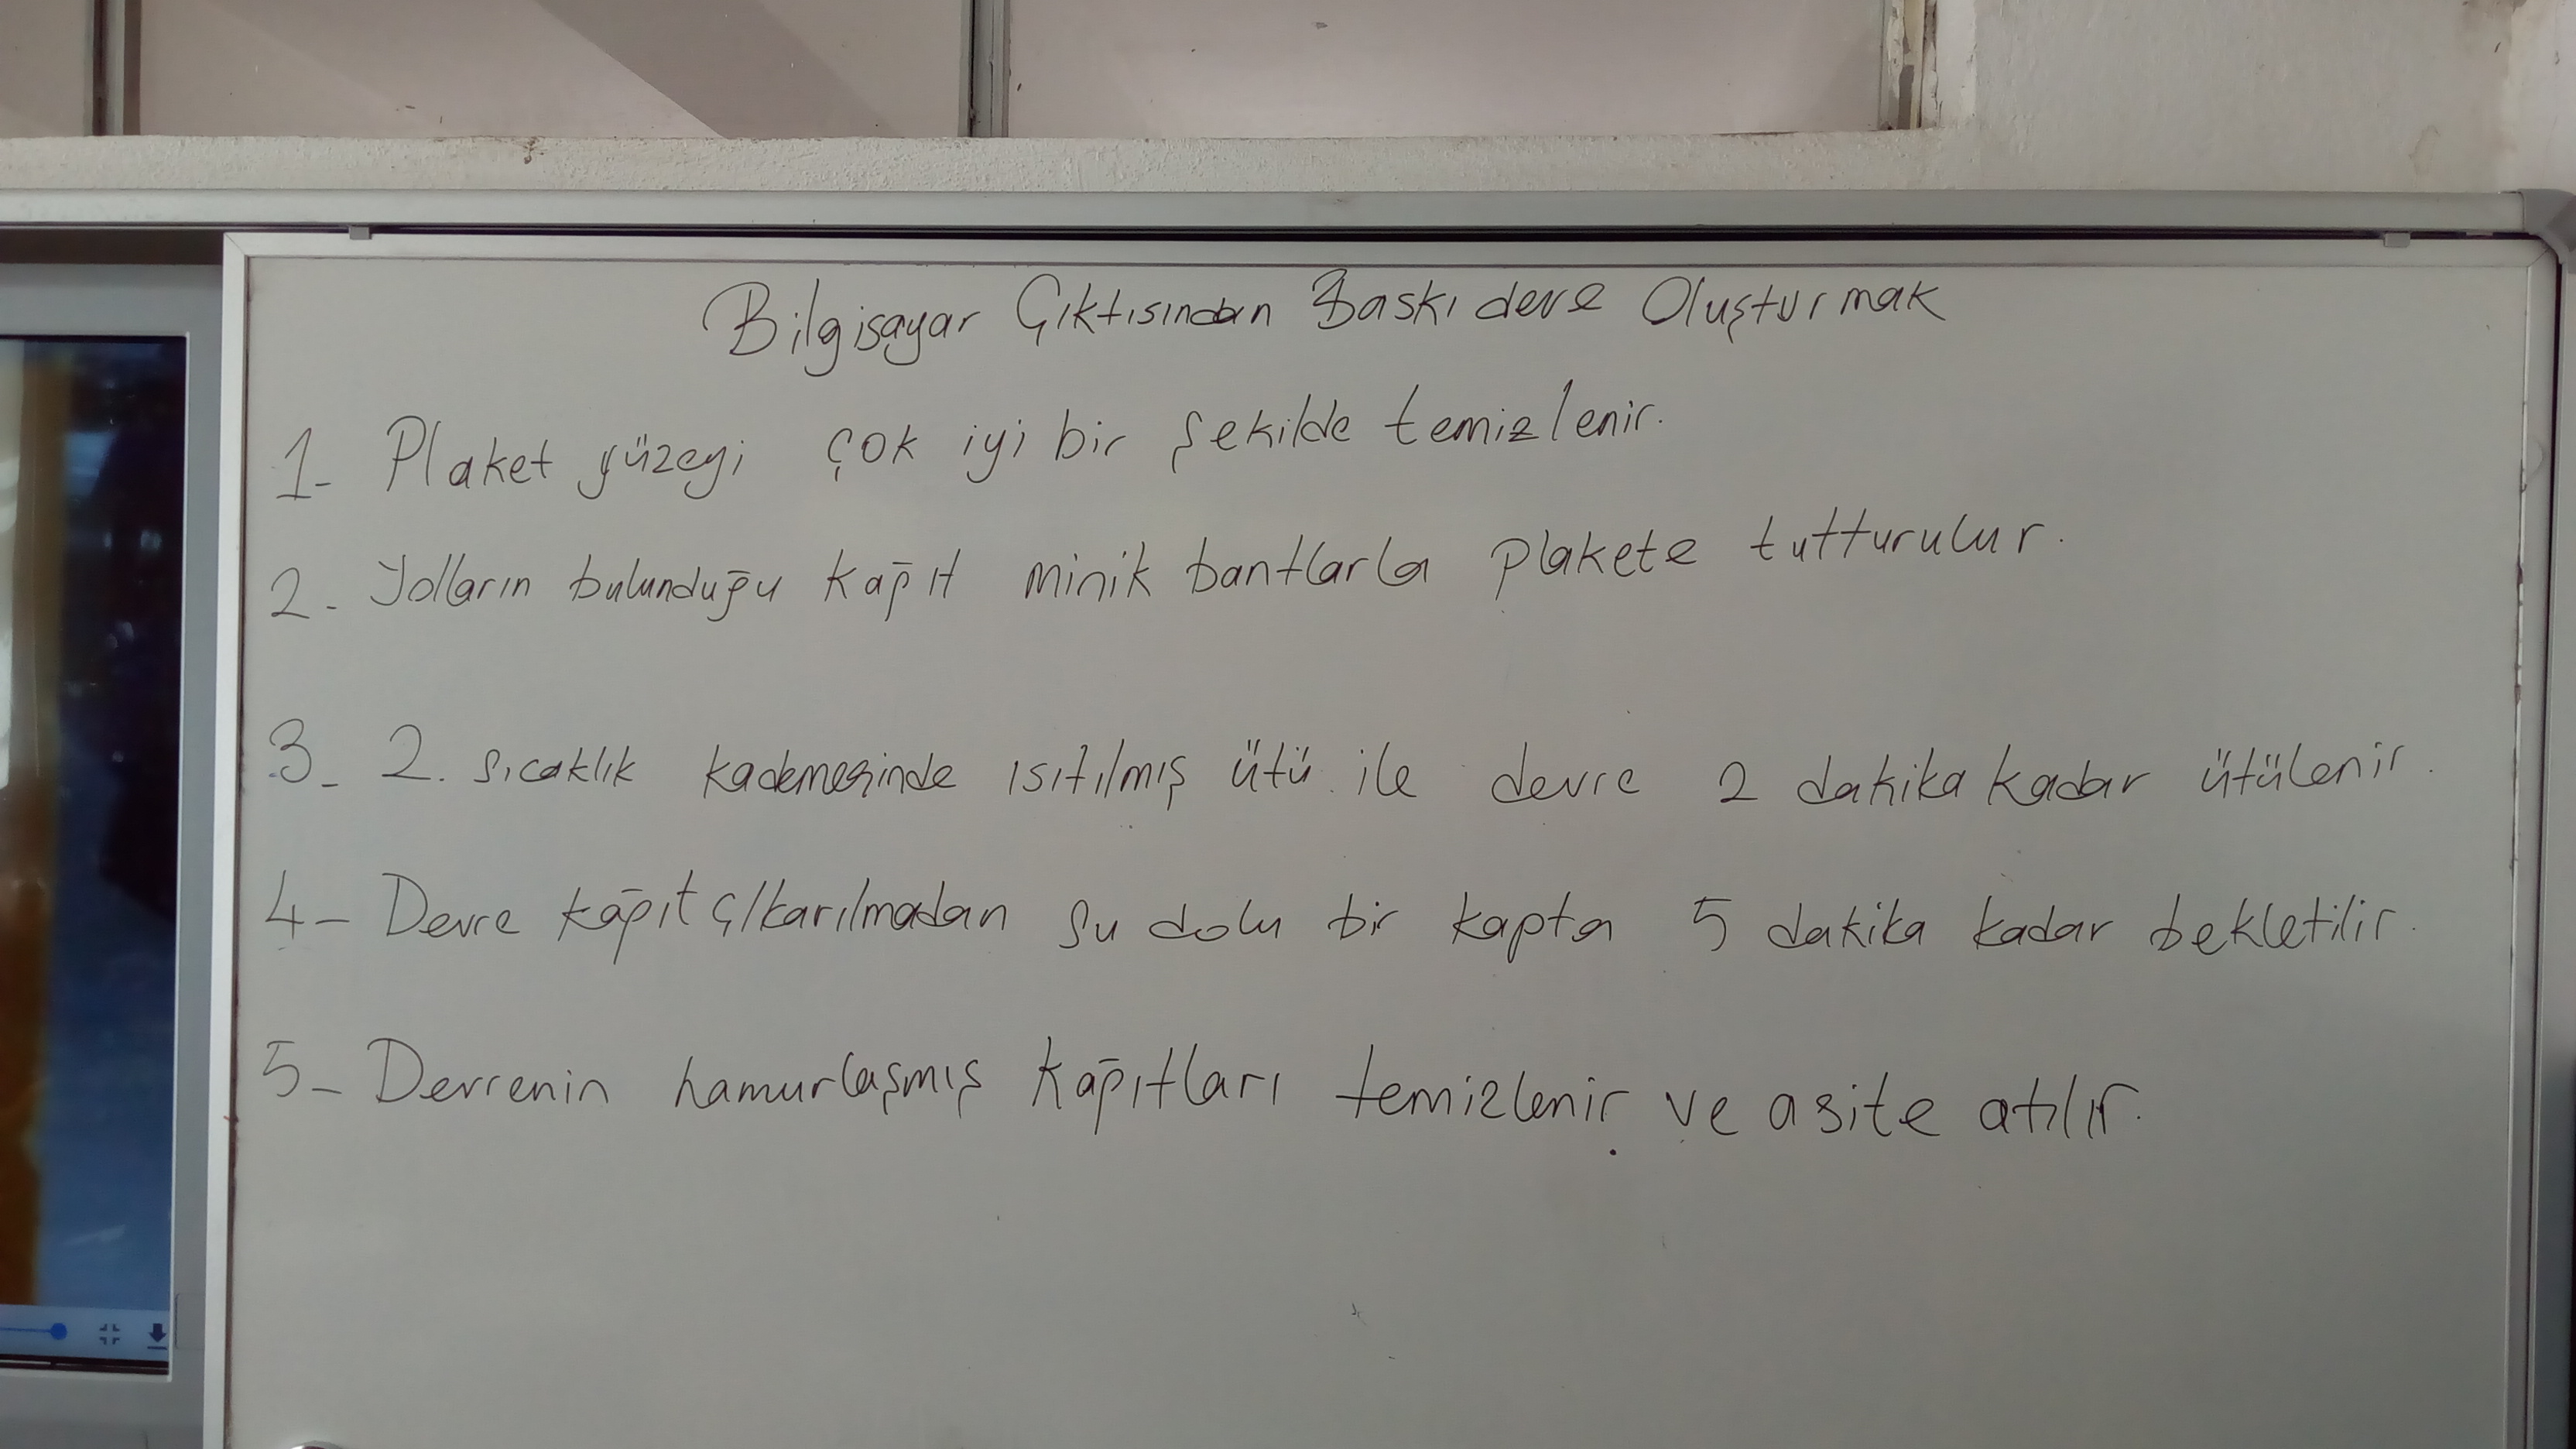 Bilgisayar Çıktısından Baskı devre Oluşturmak
1- Plaket yüzeyi çok iyi bir şekilde temizlenir.
2- Yolların bulunduğu kağıt minik bantlarla plakete tutturulur.
3- 2. sıcaklık kademesinde ısıtılmış ütü ile devre 2 dakika kadar ütülenir.
4- Devre kağıt çıkarılmadan su dolu bir kapta 5 dakika kadar bekletilir.
5- Devrenin hamurlaşmış kağıtları temizlenir ve asite atılır.